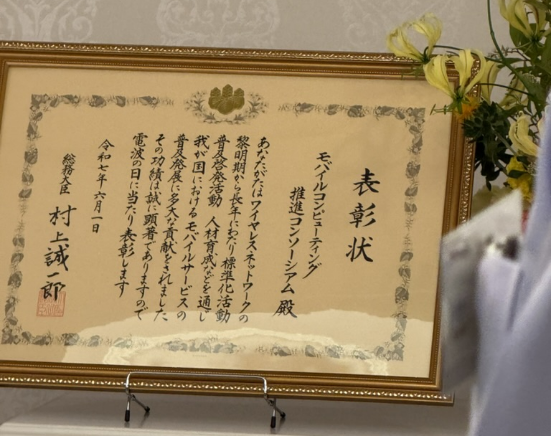 表彰状
モバイルコンピューティング
推進コンソーシアム 殿
あなたがたはワイヤレスネットワークの
黎明期から長年にわたり標準化活動
普及啓発活動 人材育成などを通し
我が国におけるモバイルサービスの
普及発展に多大な貢献をされました
その功績は誠に顕著でありますので
電波の日に当たり表彰します
令和七年六月一日
総務大臣 村上誠一郎